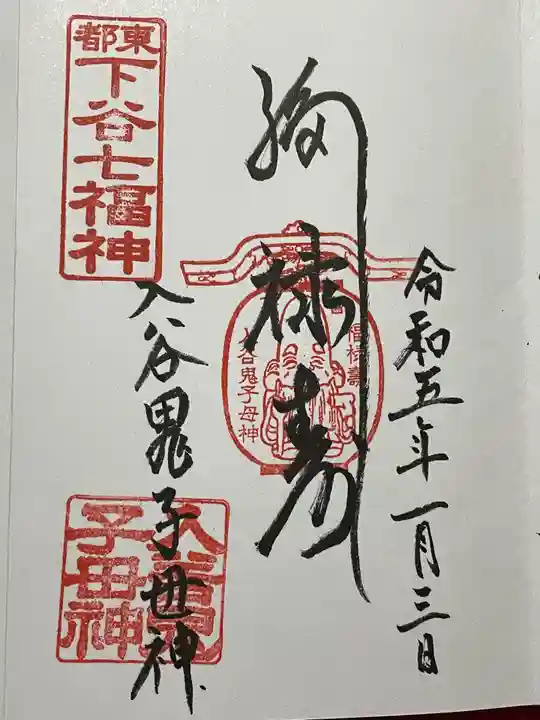 令和五年一月三日
福禄寿
福禄壽
入谷鬼子母神
東都
下谷七福神
入谷鬼子母神
入谷鬼
子母神